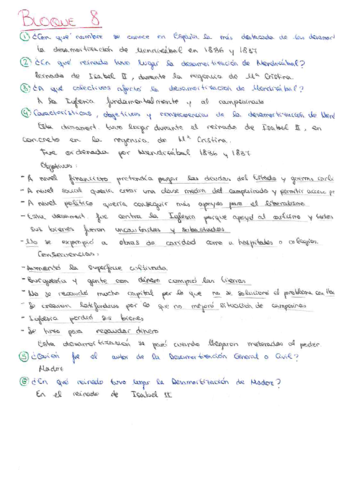 BLOQUE 8
① ¿Con qué nombre se conoce en España la más destacada de las desamort
la desamortización de Mendizábal en 1836 y 1837
② ¿En qué reinado tuvo lugar la desamortización de Mendizábal?
Reinado de Isabel II, durante la regencia de Mª Cristina.
③ ¿A qué colectivos afectó la desamortización de Mendizábal?
A la Iglesia fundamentalmente y al campesinado
④ Características, objetivos y consecuencias de la desamortización de Men
Esta desamort. tuvo lugar durante el reinado de Isabel II, en
concreto en la regencia de Mª Cristina.
Fue ordenada por Mendizábal 1836 y 1837
Objetivos:
- A nivel financiero pretendía pagar las deudas del Estado y guerra carli
- A nivel social quería crear una clase media del campesinado y permitir
- A nivel político quería conseguir más apoyos para el liberalismo
- Esta desamort fue contra la Iglesia porque apoyó al carlismo y todos
sus bienes fueron y subastados
- No se expropió a obras de caridad como a hospitales o colegios.
Consecuencias:
- Aumentó la superficie cultivada
- Burguesía y gente con dinero compró las tierras
- No se recaudó mucho capital por lo que no se solucionó el problema
- Se crearon latifundios por lo que no mejoró situación de campesinos
- Iglesia perdió sus bienes
- Se hizo para recaudar dinero
Esta desamortización se paró cuando llegaron moderados al poder.
⑤ ¿Quién fue el autor de la Desamortización General o Civil?
Madoz
⑥ ¿En qué reinado tuvo lugar la Desamortización de Madoz?
En el reinado de Isabel II